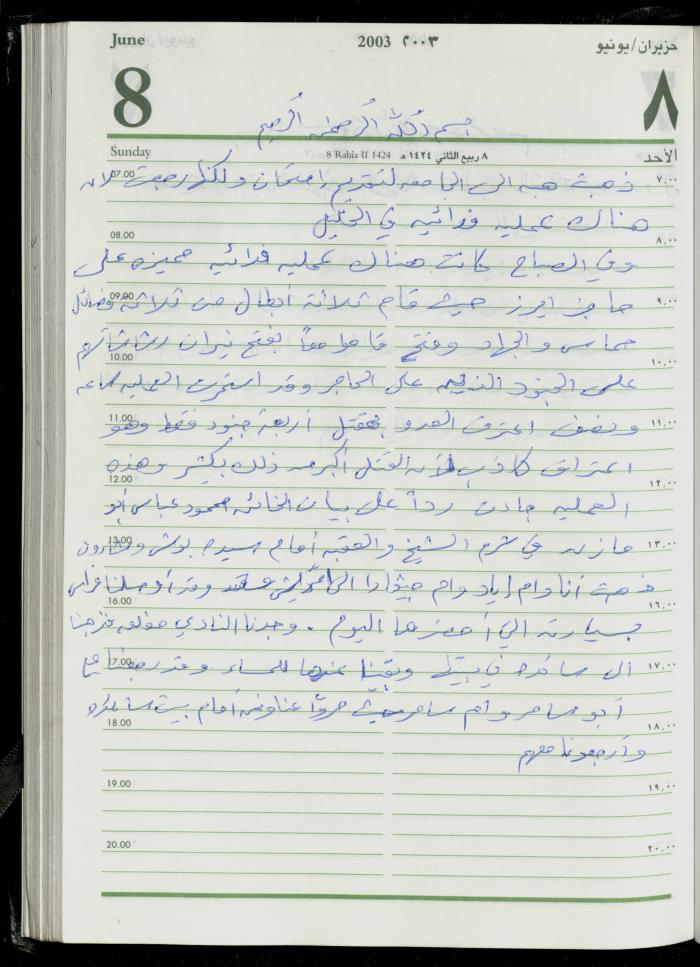 June 2003 ٢٠٠٣ حزيران/يونيو
8 ٨
بسم الله الرحمن الرحيم
Sunday 8 Rabia II 1424 ٨ ربيع الثاني ١٤٢٤ هـ الأحد
07.00 ذهبت هبه الى الجامعه لتقديم امتحان ولكنها رجعت لان ٧,٠٠
هناك عمليه فدائيه في الخليل
08.00 ٨,٠٠
وفي الصباح كانت هناك عمليه فدائيه مميزه على
09.00 حاجز ايرز حيث قام ثلاثة أبطال من ثلاثة فصائل ٩,٠٠
حماس والجهاد وفتح قاموا معاً بفتح نيران رشاشاتهم
10.00 ١٠,٠٠
على الجنود على الحاجز وقد استمرت العمليه ساعه
11.00 ونصف اعترف العدو بمقتل أربعة جنود فقط وهو ١١,٠٠
اعتراف كاذب لأن القتل أكبر من ذلك بكثير وهذه
12.00 ١٢,٠٠
العمليه جاءت رداً على بيان الخائن محمود عباس أبو
13.00 مازن في شرم الشيخ والعقبه أمام سيده بوش وشارون ١٣,٠٠
ذهبت أنا وام اياد وام وقد أوصلنا فراس
16.00 ١٦,٠٠
بسيارته التي أحضرها اليوم . وجدنا النادي مغلق فخرجنا
17.00 الى في بيتها وبقينا عندها للمساء وقد رجعنا مع ١٧,٠٠
أبو سامر وام سامر حيث مروا عنا ونحن أمام بيت
18.00 ١٨,٠٠
وأرجعونا معهم
19.00 ١٩,٠٠
20.00 ٢٠,٠٠